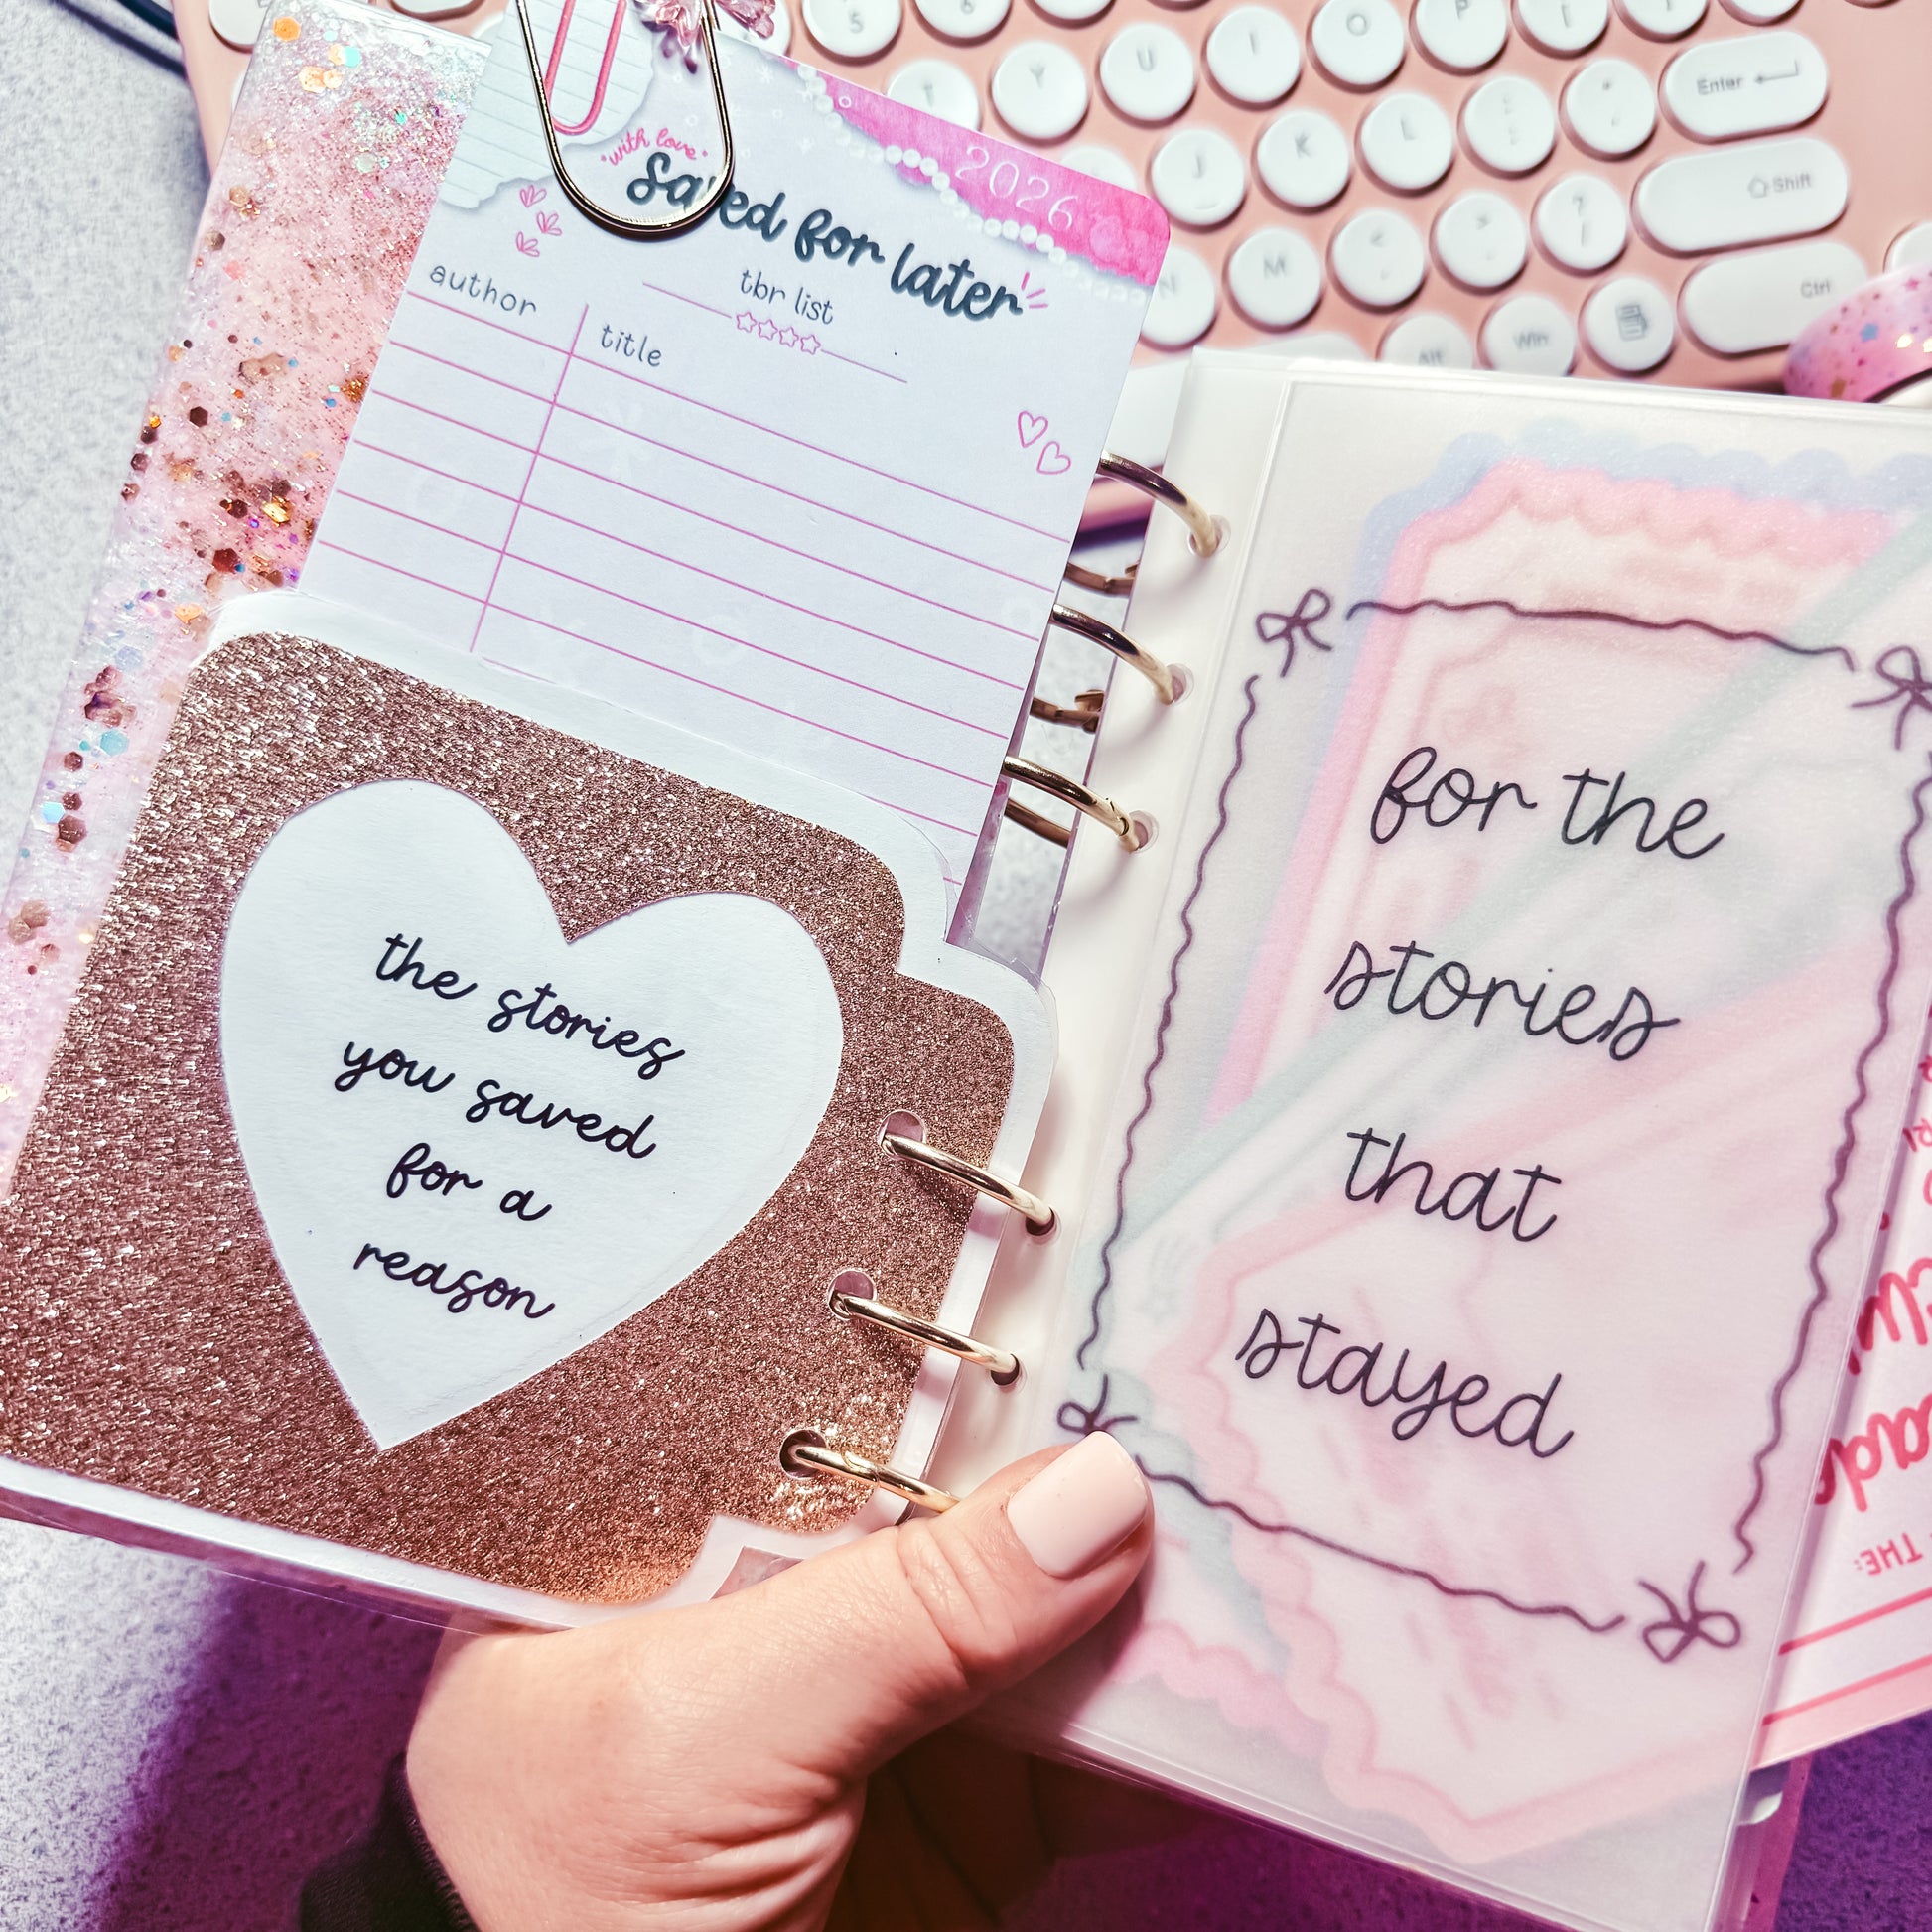 5
6
Y
U
I
O
P
J
K
L
Enter
N
M
Shift
Alt
Win
Ctrl
2026
"with love"
Saved for later
tbr list
author
title
the stories
you saved
for a
reason
for the
stories
that
stayed
THE: